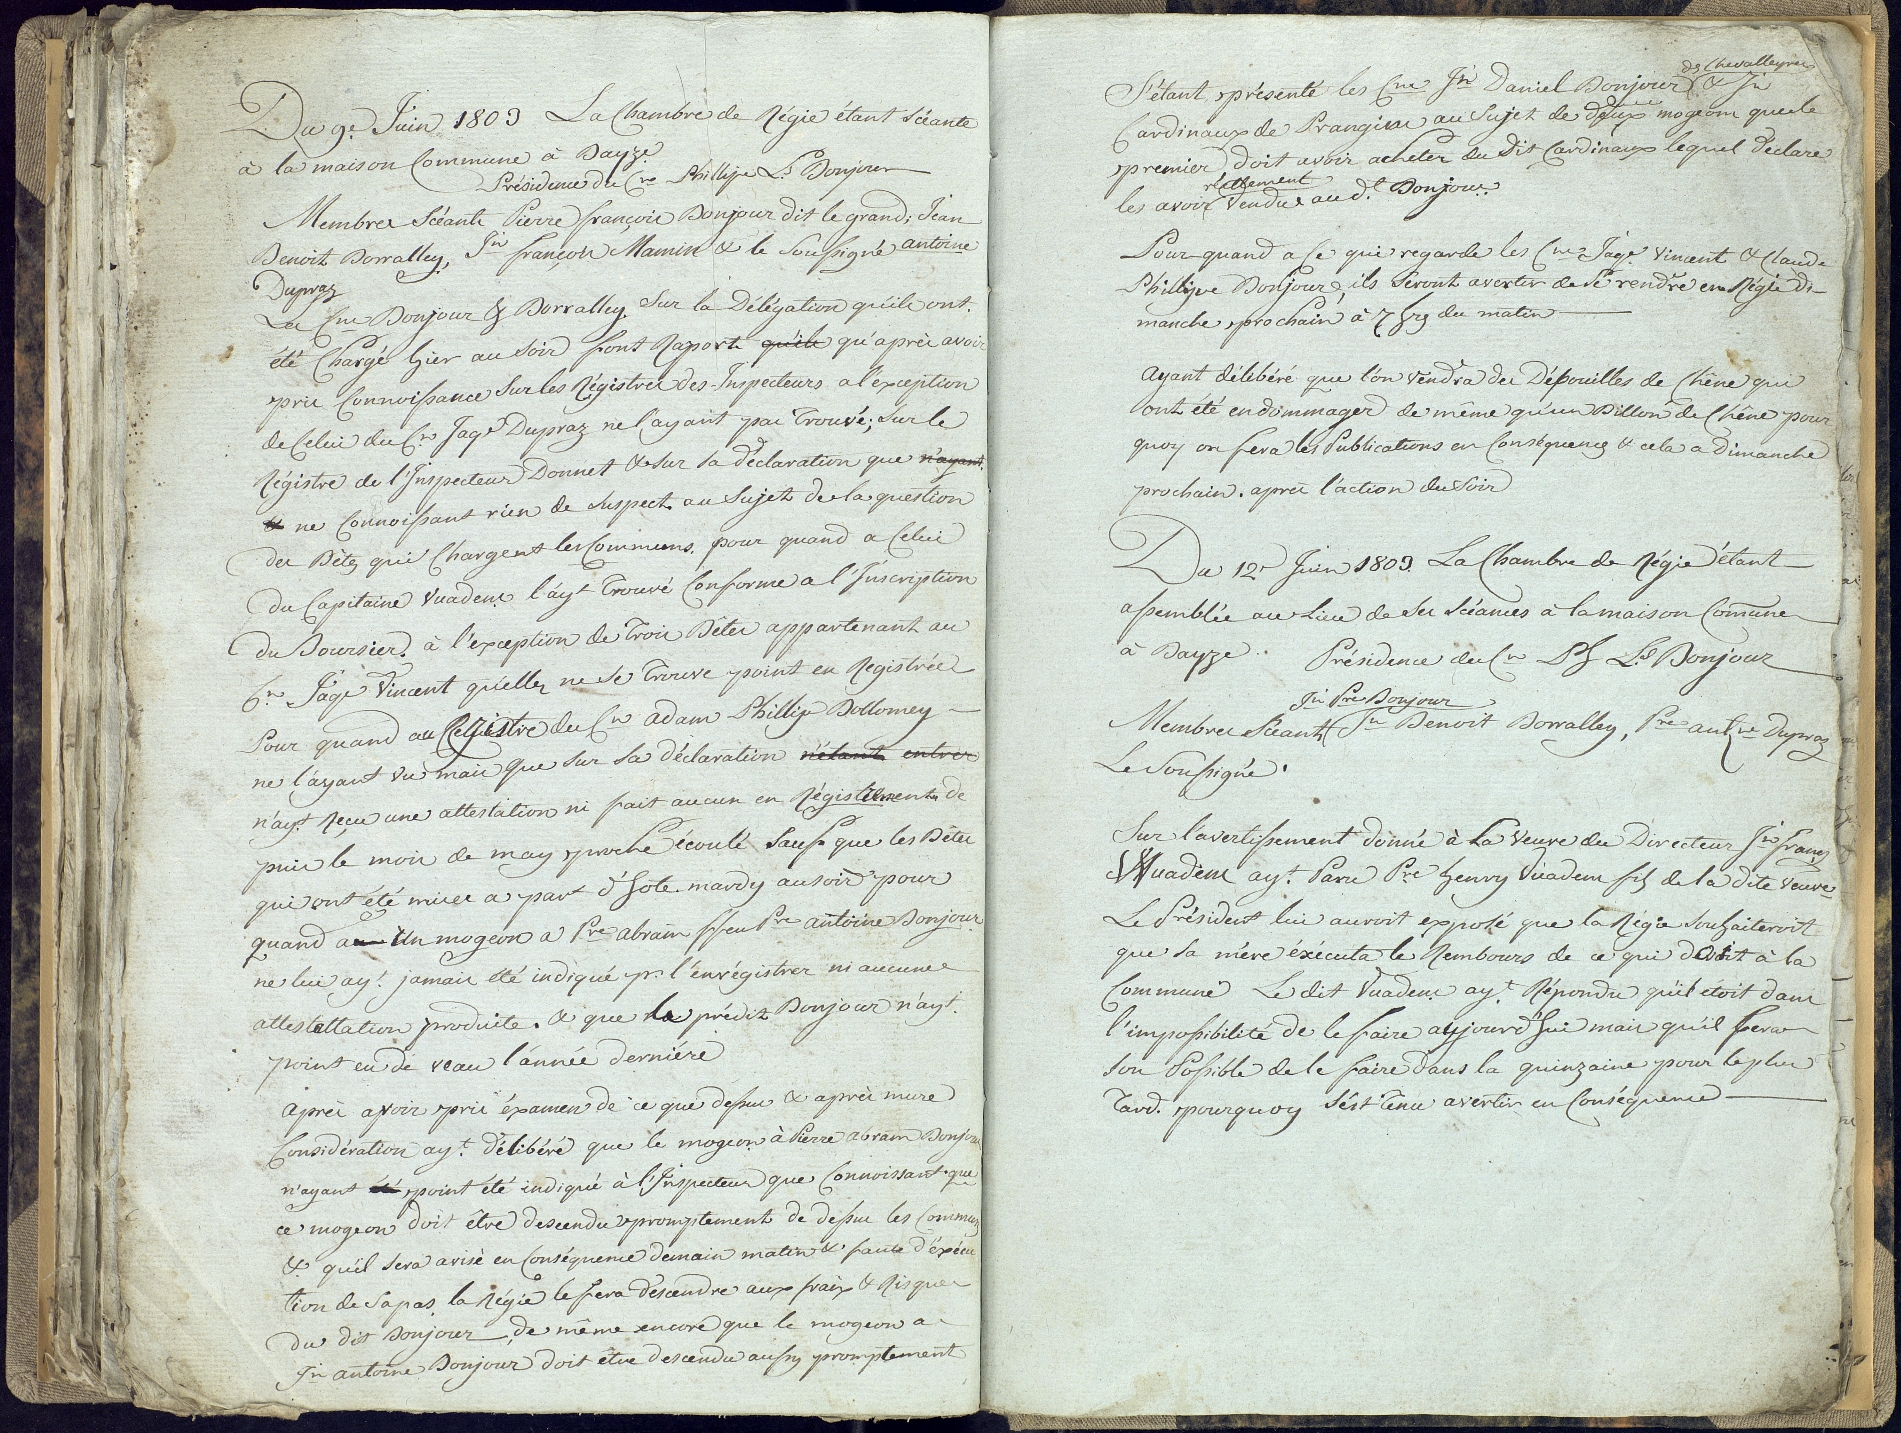 Du 9e. Juin 1803 La Chambre de Régie étant Scéante
à la maison Commune à Bayze
Présidence du Cn Phillipe Ls Bonjour
Membres Scéants Pierre françois Bonjour dit le grand, Jean
Benoit Borralley, Jn françois Mamin & le Soussigné antoine
Dupraz
Les Cns Bonjour & Borralley, Sur la Délégation qu'ils ont
été Chargé hier au Soir font Raport qu'ils qu'après avoir
pris Connoissance Sur les Régistres des Inspecteurs a l'exception
de Celui du Cn Jaqs Dupraz ne l'ayant pas Trouvé; Sur le
Régistre de l'Inspecteur Donnet & sur sa déclaration que n'ayant
& ne Connoissant rien de Suspect au Sujet de la question
des Bêtes qui Chargent les Communs, pour quand a Celui
du Capitaine Vuadens l'ayt Trouvé Conforme a l'Inscription
du Boursier, à l'exception de Trois Bêtes appartenant au
Cn Jaqs Vincent qu'elles ne se Trouve point en Registrées
Pour quand au Registre du Cn adam Phillipe Bollomey
ne l'ayant vu mais que sur Sa déclaration n'étant entrer
n'ayt Reçu une attestation ni fait aucun en Régistrement de
puis le mois de may proche écoulé Sauf que les Bêtes
qui ont été mises a part d'hote mardy au soir pour
quand a un mogeon a Pre abram ffeu Pre antoine Bonjour
ne lui ayt. jamais été indiqué pr l'enrégistrer ni aucune
attestattation produite. & que le prédit Bonjour n'ayt.
point eu de veau l'année derniére
après avoir pris éxamen de ce que dessus & après mure
Considération ayt. délibéré que le mogeon à Pierre abram Bonjour
n'ayant été point été indiqué à l'Inspecteur que Connoissant que
ce mogeon doit être descendu promptement de dessus les Communs
& qu'il sera avisé en Conséquence demain matin & faute d'éxécu
tion de Sa pas, la Régie le fera descendre aux fraix & Risques
du dit Bonjour, de même encore que le mogeon a
Jn antoine Bonjour doit être descendu aussy promptement
ds Chevalleyres
S'étant présenté les Cns Jn Daniel Bonjour & Jn
Cardinaux de Prangins au Sujet de deux mogeons que le
premier doit avoir acheter du Dit Cardinaux lequel déclare
réellement
les avoir Vendus au dt. Bonjour.
Pour quand a Ce qui regarde les Cns Jaqs Vincent & Claude
Phillipe Bonjour, ils Seront avertir de Se rendre en Régie di-
manche prochain à 7 hrs du matin
Ayant délibéré que l'on vendra des Dépouilles de Chêne qui
ont été endommager de même qu'un Billon de Chêne pour
quoy on fera les Publications en Conséquence & cela a Dimanche
prochain. après l'action du Soir
Du 12e Juin 1803 La Chambre de Régie étant
assemblée au Lieu de Ses Scéances à la maison Comune
à Bayze. Présidence du Cn Ph Ls Bonjour
Jn Pre Bonjour
Membres Scéants Jn Benoit Borralley, Pre antne Dupraz
Le Soussigné.
Sur l'avertissement donné à La Veuve du Directeur Jn frans
Vuadens ayt. Paru Pre henry Vuadens fils de la dite Veuve
Le Président lui auroit exposé que la Régie Souhaiteroit
que Sa mère éxécuta le Rembours de ce qui doit à la
Commune Le dit Vuadens ayt. Répondu qu'il etoit dans
l'impossibilité de le faire aujourd'hui mais qu'il fera
son Possible de le faire dans la quinzaine pour le plus
Tard. pourquoy S'est Tenu avertir en Conséquence